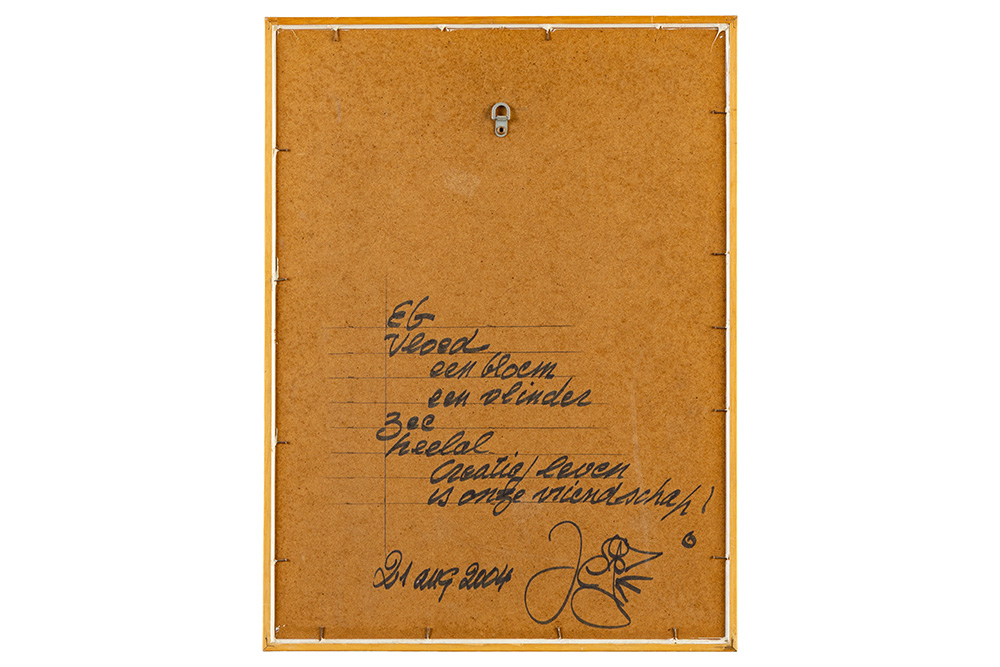 Eb
Vloed
een bloem
een vlinder
Zee
heelal
Creatief leven
is onze vriendschap!
21 aug 2004